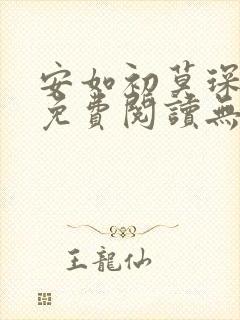 安如初莫琛
免費閱讀無
王龍仙